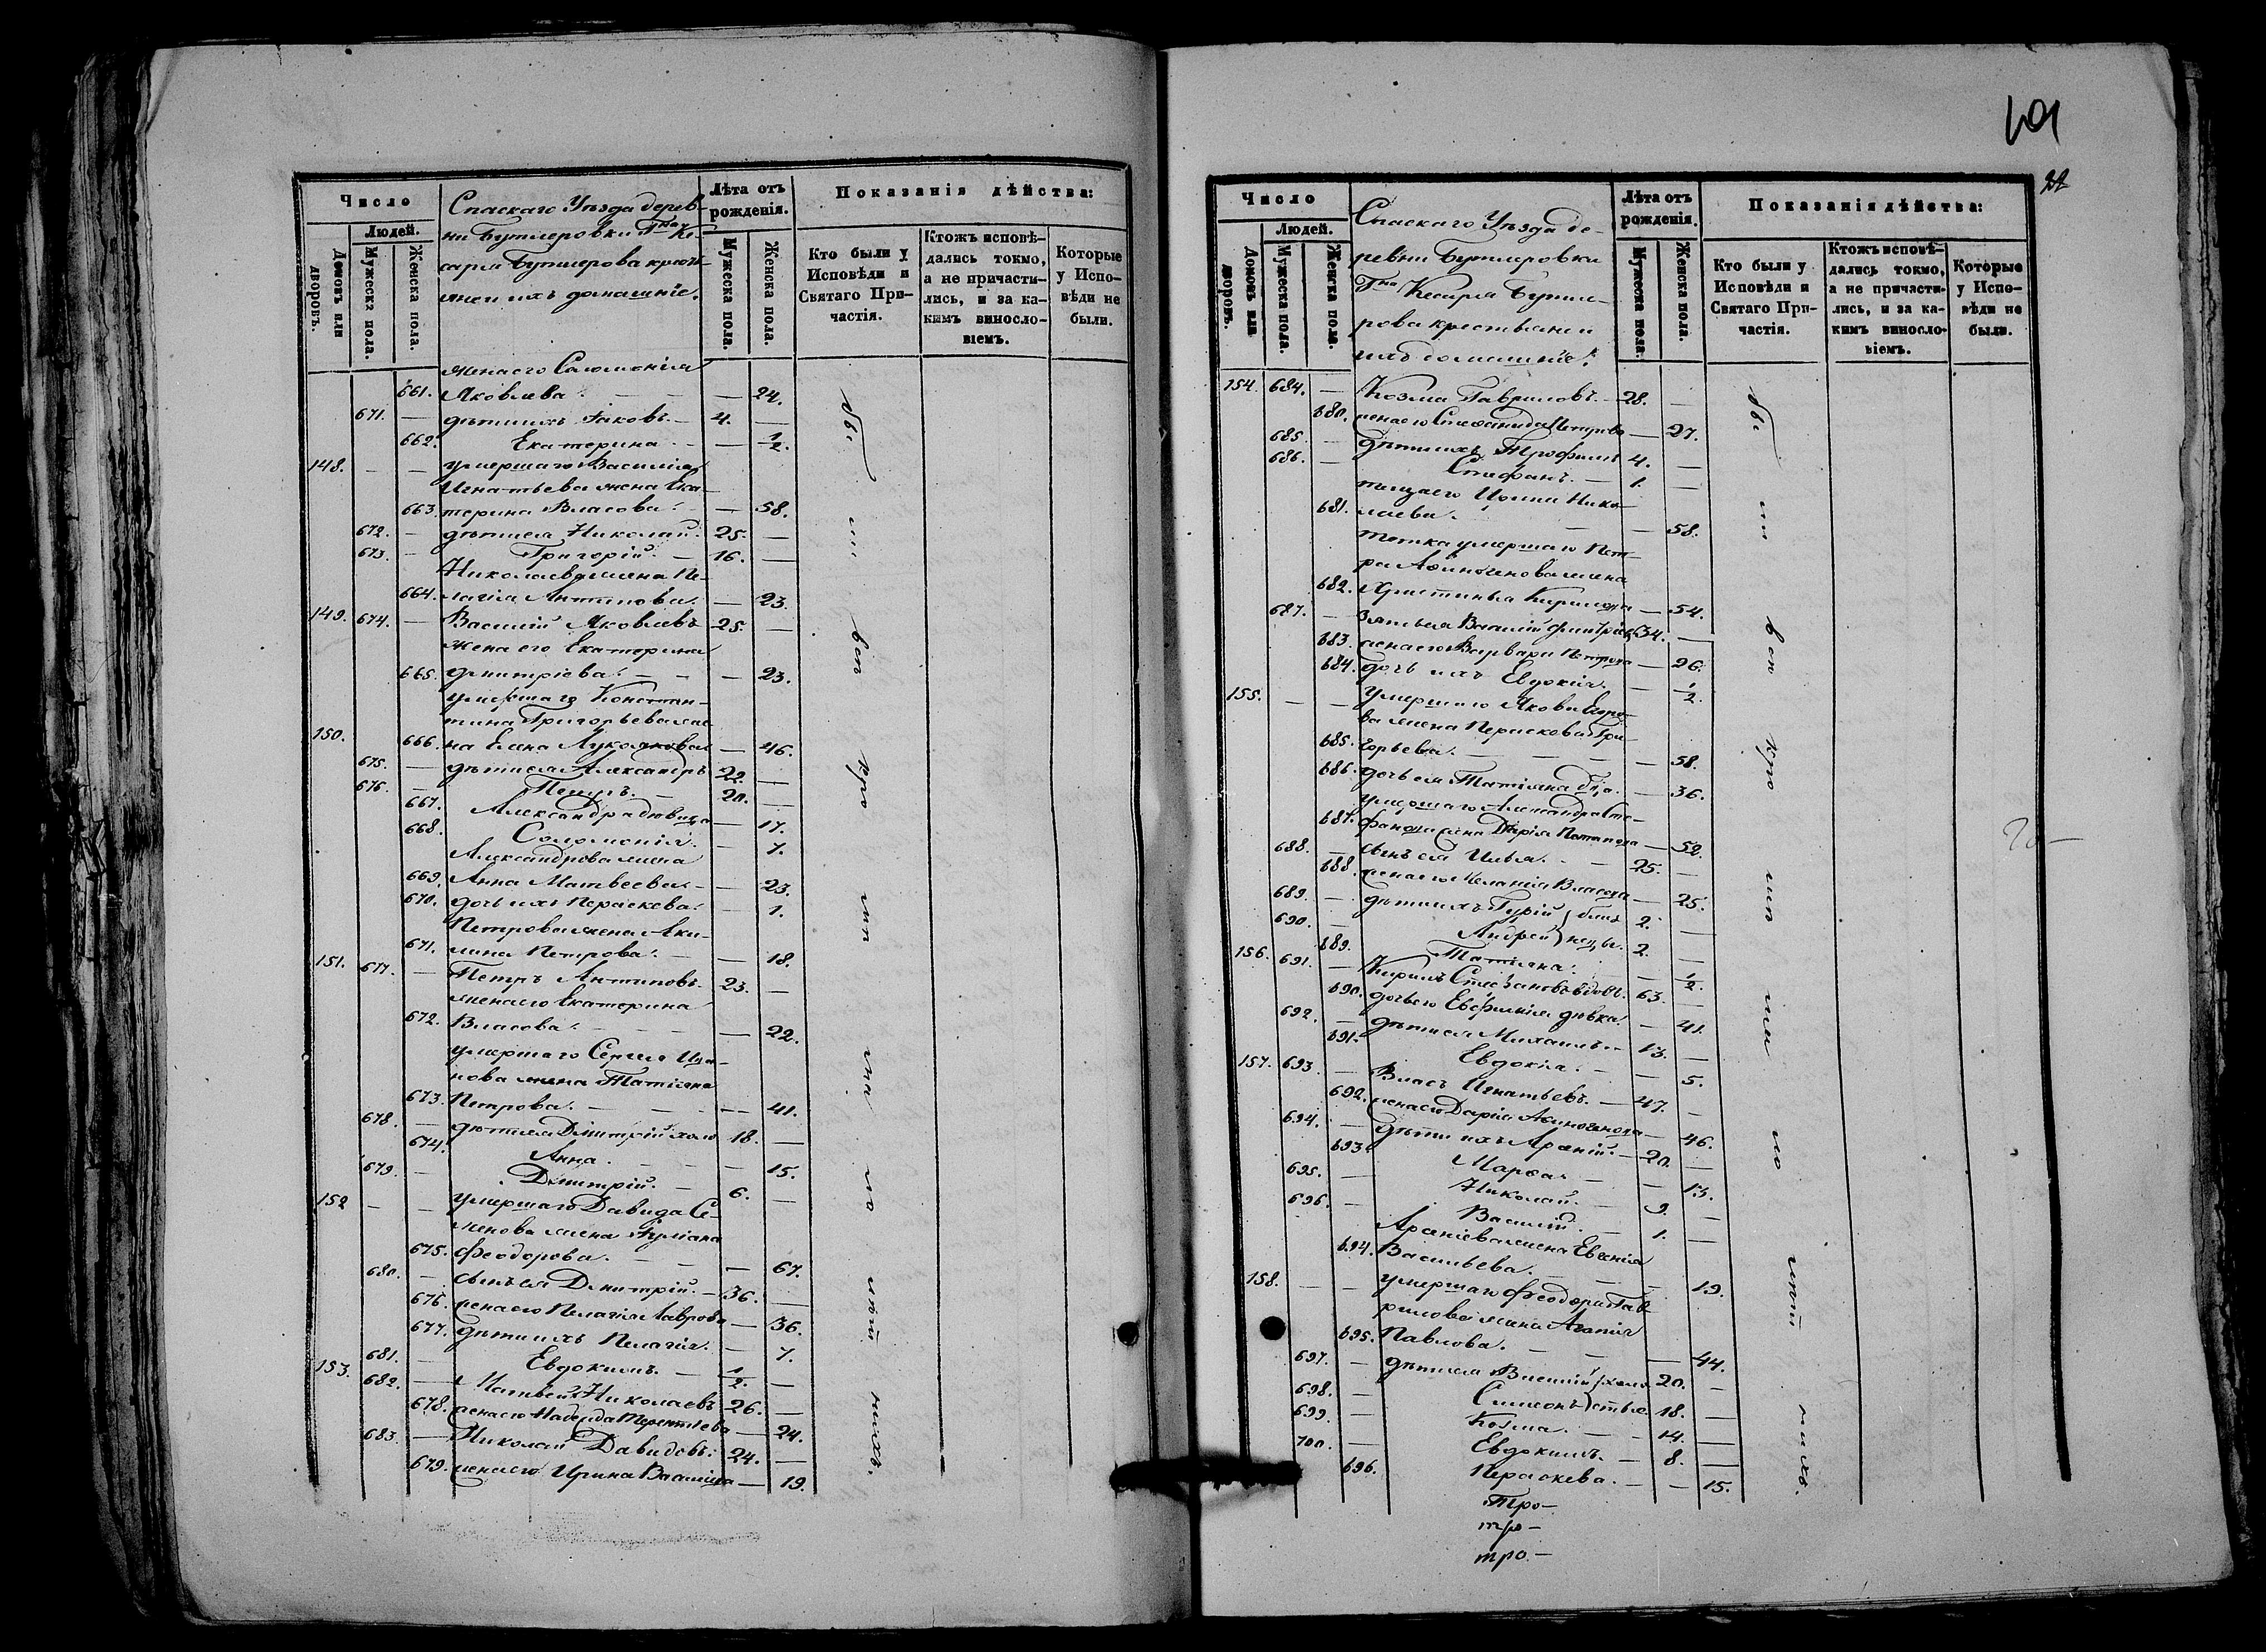 Число
Людей.
Домовъ или дворовъ.
Мужеска пола.
Женска пола.
Спаскаго Уѣзда дерев-
ни Бутлеровки Гна Ке-
саря Бутлерова крестья-
яне и ихъ домашніе.
Лѣта отъ рожденія.
Мужеска пола.
Женска пола.
Показанія дѣйства:
Кто были у Исповѣди и Святаго При-частія.
Ктожъ исповѣ-дались токмо, а не причасти-лись, и за ка-кимъ винословіемъ.
Которые у Испо-вѣди не были.
жена его Соломонія
661. Яковлева. — 24.
671. — дѣти ихъ Іаковъ. — 4. —
662. Екатерина — 1/2.
148. — — умершаго Василія
Игнатьева жена Ека-
663. терина Власова. — 58.
672. — дѣти ея Николай. 25. —
673. — Григорій. — 16. —
Николаева жена Пе-
664. лагія Антипова. — 23.
149. 674. — Василій Яковлевъ 25. —
жена его Екатерина
665. Дмитріева. — 23.
умершаго Констан-
тина Григорьева же-
150. 666. на Елена Лукоянова — 46.
675. — дѣти ея Александръ 22. —
676. — Петръ. — 20. —
667. Александра дѣвица — 17.
668. Соломонія. — 7.
Александрова жена
669. Анна Матвеева — 23.
670. дочь ихъ Параскева. — 1.
Петрова жена Аки-
671. лина Петрова. — 18.
151. 677. — Петръ Антиповъ. 23. —
жена его Екатерина
672. Власова. — 22.
умершаго Сергея Ива-
нова жена Татіана
673. Петрова. — 41.
678. — дѣти ея Дмитрій холо 18. —
674. Анна. — 15.
679. — Дмитрій. — 6. —
152 — — умершаго Давида Се-
менова жена Іуліана
675. Феодорова. — 67.
680. — сынъ ея Дмитрій. — 36. —
676. жена его Пелагія Лаврова — 36.
677. дѣти ихъ Пелагія. — 7.
681. — Евдокимъ. — 1/2. —
153. 682. — Матвей Николаевъ 26. —
678. жена его Надежда Терентіева — 24.
683. — Николай Давидовъ. 24. —
679. жена его Ирина Василіева — 19.
бы ли во про ли ни по лѣт нихъ.
101
Число
Людей.
Домовъ или дворовъ.
Мужеска пола.
Женска пола.
Спаскаго Уѣзда де-
ревни Бутлеровки
Гна Кесаря Бутле-
рова крестьяне и
ихъ домашніе.
Лѣта отъ рожденія.
Мужеска пола.
Женска пола.
Показанія дѣйства:
Кто были у Исповѣди и Святаго При-частія.
Ктожъ исповѣ-дались токмо, а не причасти-лись, и за ка-кимъ винословіемъ.
Которые у Испо-вѣди не были.
154. 684. — Козма Гавриловъ. — 28. —
680. жена его Степанида Петрова — 27.
685. — дѣти ихъ Трофимъ 4. —
686. — Стефанъ. — 1. —
теща его Ирина Нико-
681. лаева. — 58.
тетка умершаго Пет-
ра Афиногенова жена
682. Христинья Кирилова — 54.
687. — зять ея Василій Дмитріевъ 34. —
683. жена его Варвара Петрова — 26.
684. дочь ихъ Евдокія. — 1/2.
155. — — умершаго Якова Егоро-
ва жена Параскова Гри-
685. горьева. — 58.
686. дочь ея Татіана — 36.
умершаго Александра Сте-
687. фанова жена Дарія Потапова — 52.
688. — сынъ ея Илья. — 25. —
688. жена его Меланія Власова — 25.
689. — дѣти ихъ Гурій } близ 2. —
690. — Андрей } нецы. 2. —
689. Татіана. — 1/2.
156. 691. — Кирилъ Стефановъ вдовъ. 63. —
690. дочь его Евфимія дѣвка. — 41.
692. — дѣти ея Михаилъ — 13. —
691. Евдокія. — 5.
157. 693. — Власъ Игнатьевъ. — 47. —
692. жена его Дарія Афиногенова — 46.
694. — дѣти ихъ Арсеній. — 20. —
693. Марѳа — 13.
695. — Николай. — 9. —
696. — Василій. — 1. —
Арсеніева жена Евгенія
694. Васильева. — 19.
158. — — умершаго Феодора Гав-
рилова жена Агапія
695. Павлова. — 44.
697. — дѣти ея Василій } холо 20. —
698. — Симеонъ } стые. 18. —
699. — Козма. — 14. —
700. — Евдокимъ. — 8. —
696. Параскева. — 15.
Тро —
тро —
тро. —